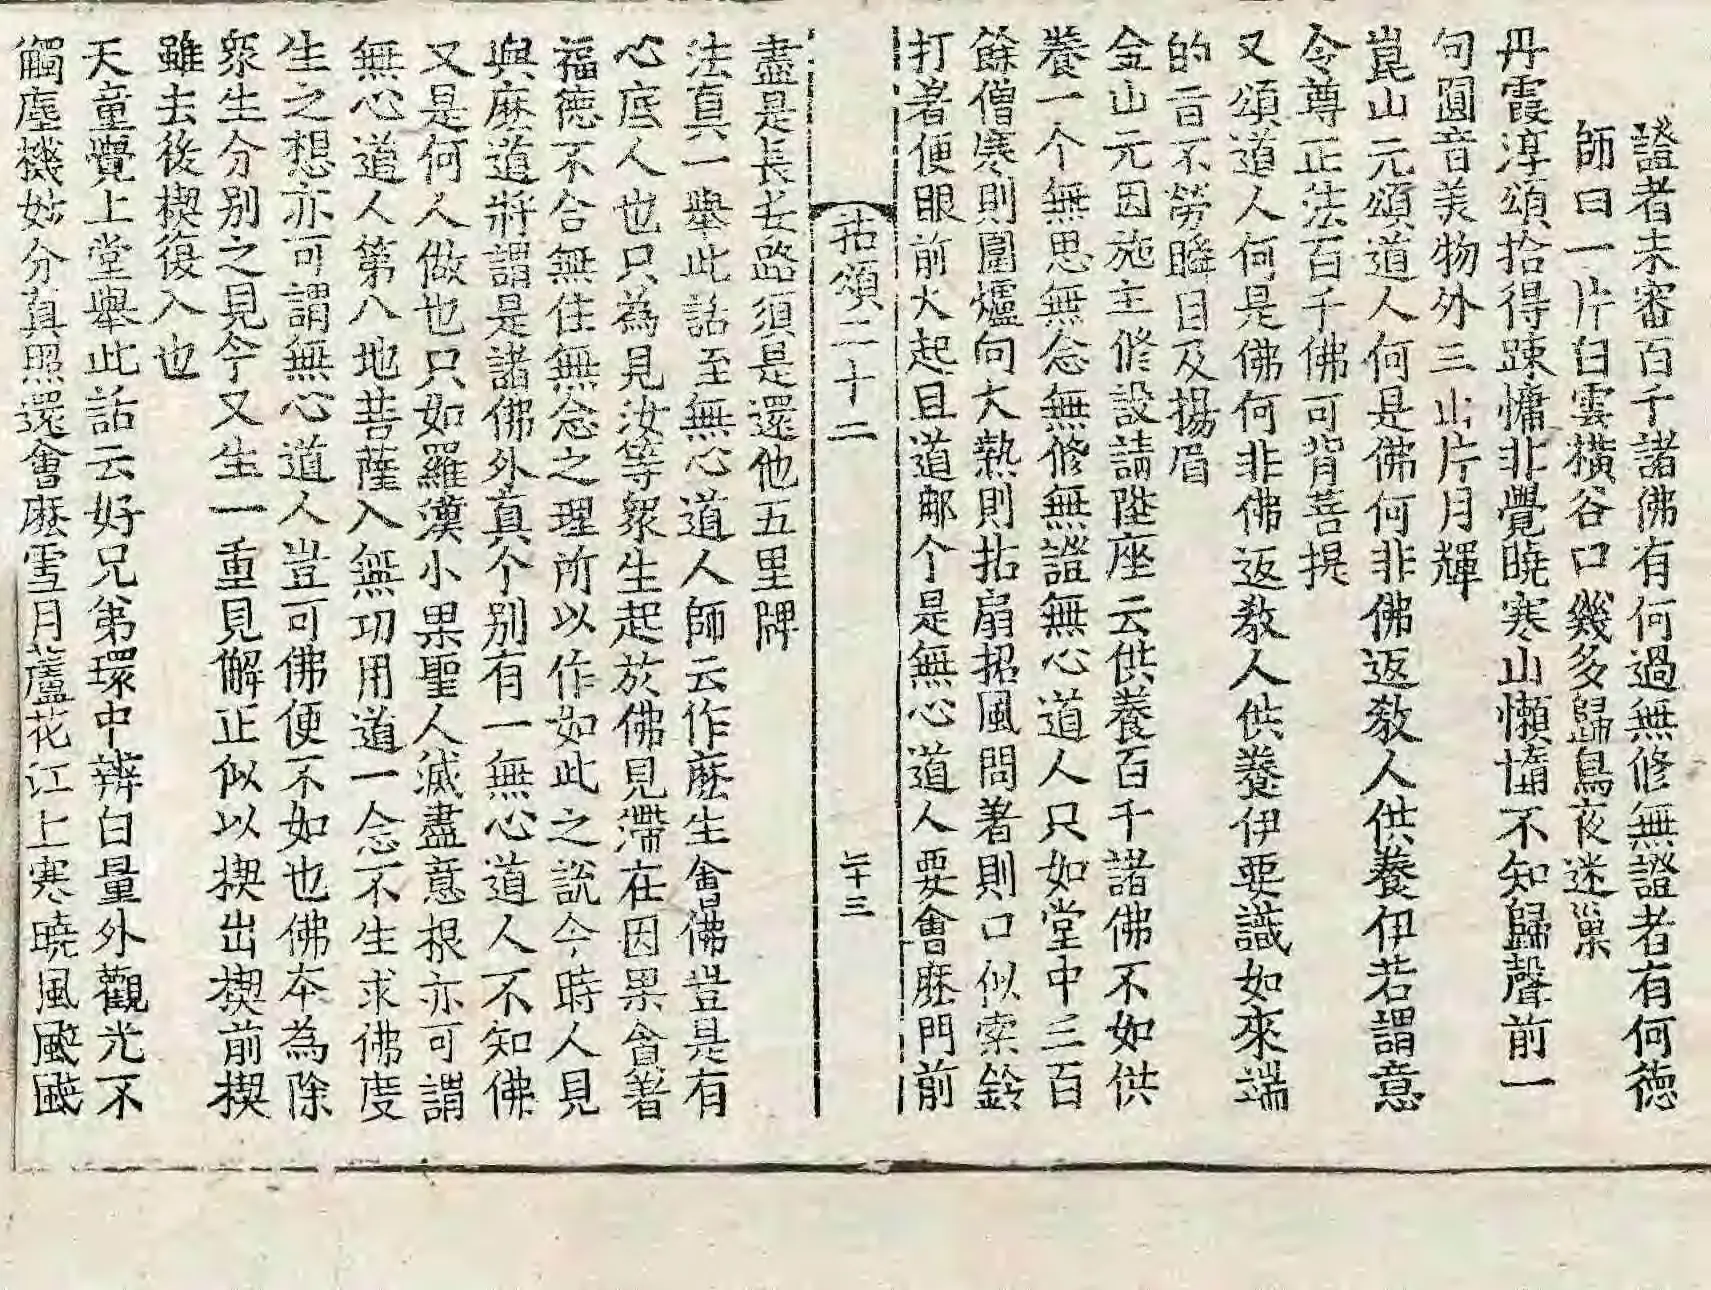 證者未審百千諸佛有何過無修無證者有何德
師曰一片白雲橫谷口幾多歸鳥夜迷巢
丹霞淳頌拾得踈慵非覺曉寒山懶惰不知歸聲前一
句圓音美物外三山片月輝
崑山元頌道人何是佛何非佛返教人供養伊若謂意
令尊正法百千佛可背菩提
又頌道人何是佛何非佛返教人供養伊要識如來端
的旨不勞瞬目及揚眉
金山元因施主修設請陞座云供養百千諸佛不如供
養一个無思無念無修無證無心道人只如堂中三百
餘僧寒則圍爐向火熱則拈扇招風問著則口似索鈴
打著便眼前火起且道那个是無心道人要會麽門前
拈頌二十二
二十三
盡是長安路須是還他五里牌
法真一舉此話至無心道人師云作麽生會佛豈是有
心底人也只為見汝等衆生起於佛見滯在因果貪著
福德不合無住無念之理所以作如此之說今時人見
與麽道將謂是諸佛外真个别有一無心道人不知佛
又是何人做也只如羅漢小果聖人滅盡意根亦可謂
無心道人第八地菩薩入無功用道一念不生求佛度
生之想亦可謂無心道人豈可佛便不如也佛本為除
衆生分别之見今又生一重見解正似以楔出楔前楔
雖去後楔復入也
天童覺上堂舉此話云好兄弟環中辨白量外觀光不
觸塵機妙分真照還會麽雪月蘆花江上寒曉風颭颭